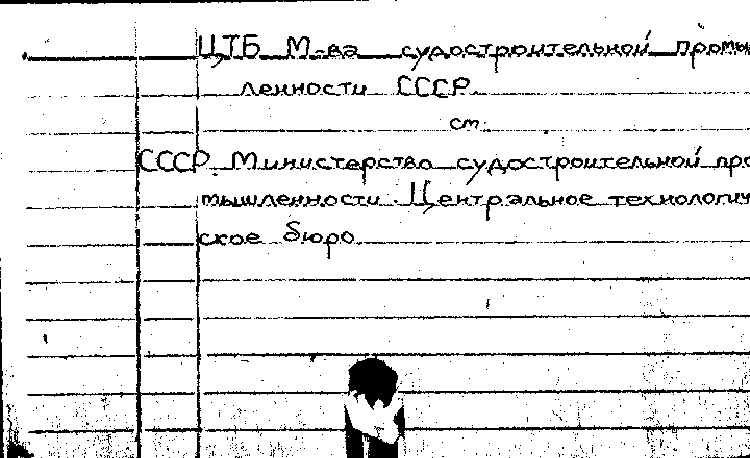 ЦТБ М-ва судостроительной промыш
ленности СССР
см.
СССР. Министерство судостроительной про
мышленности. Центральное технологиче
ское бюро